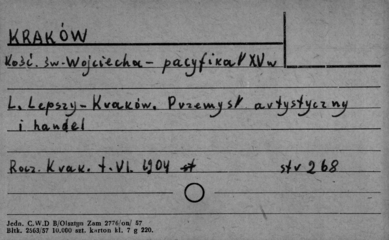 KRAKÓW
Kość. św. Wojciecha - pacyfikał XV w
L. Lepszy - Kraków. Przemysł artystyczny
i handel
Rocz. Krak. t. VI. 1904 str 268
Jedn. C.W.D B/Olsztyn Zam 2776/on/ 57
Bltk. 2563/57 10.000 szt. karton kl. 7 g 220.